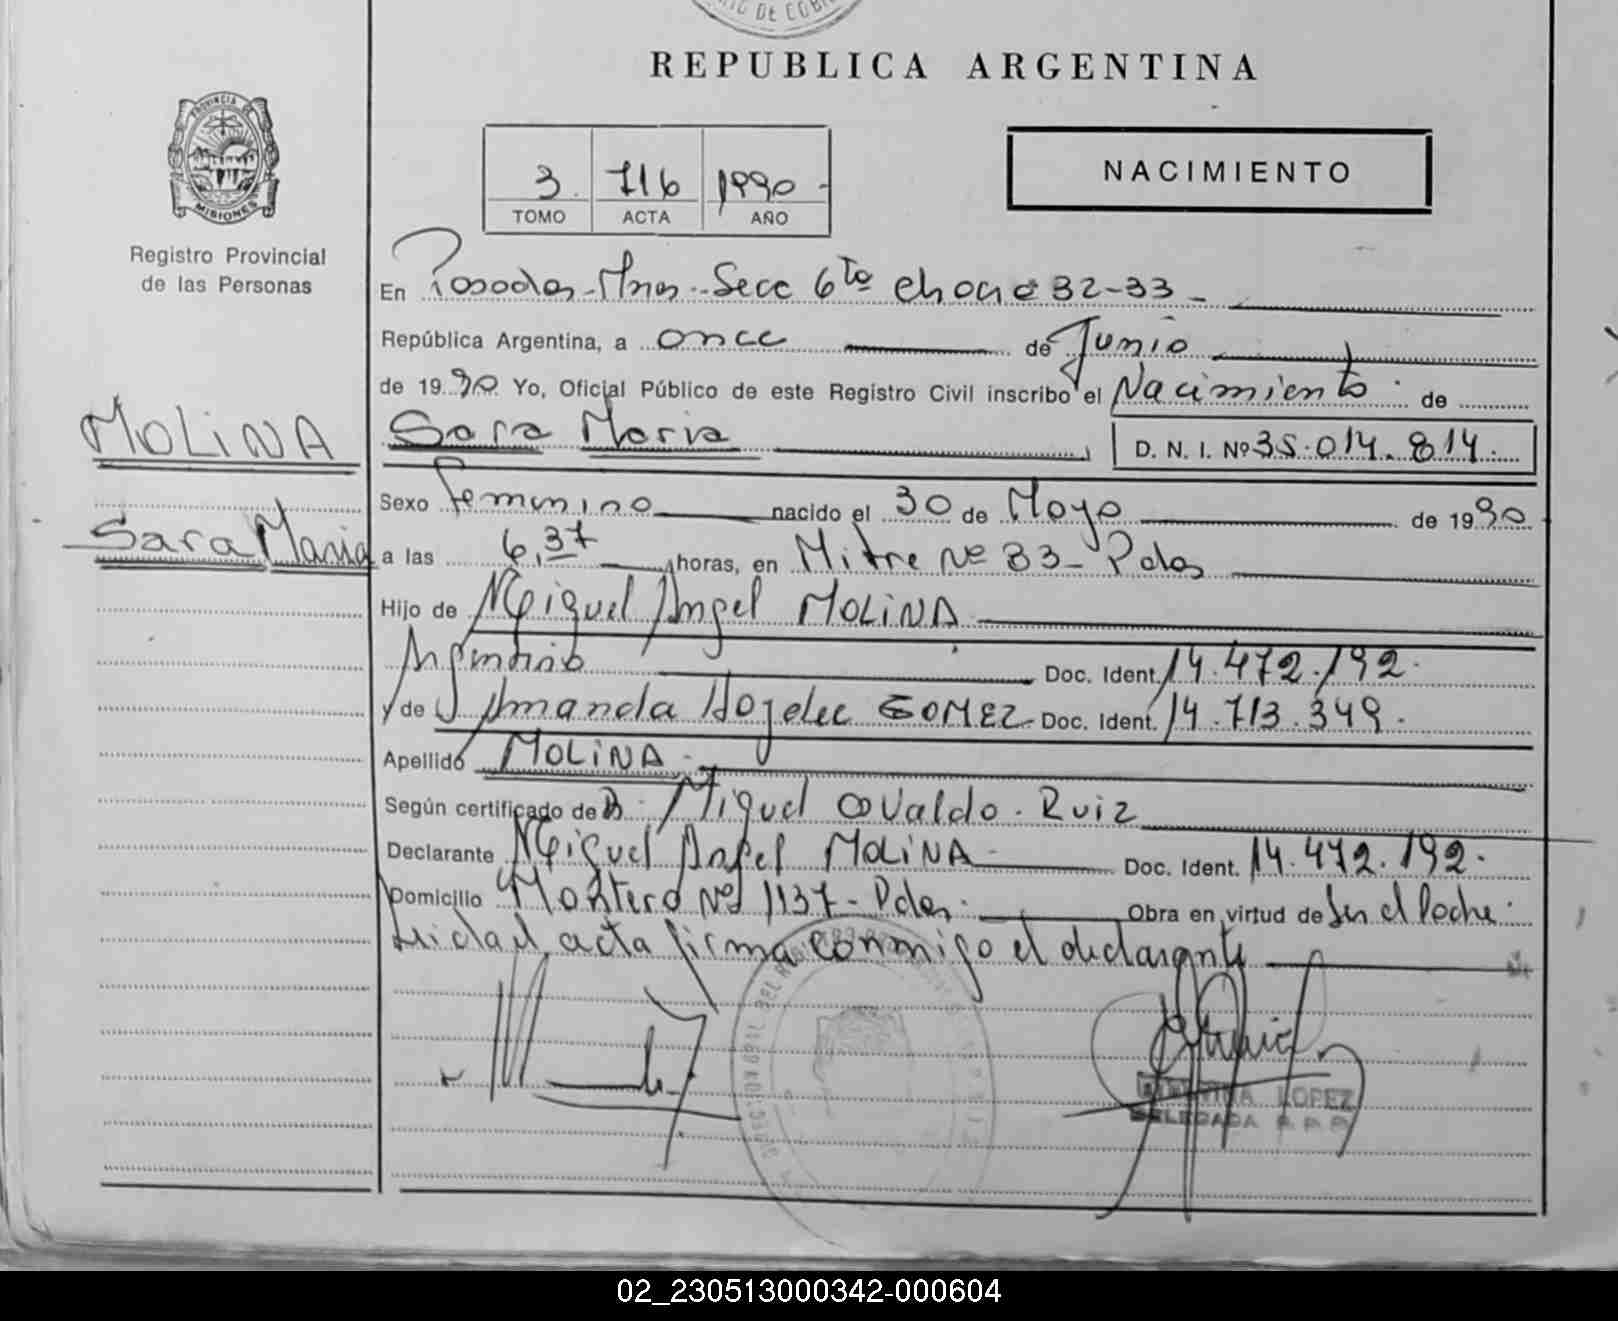 REPUBLICA ARGENTINA
PROVINCIA DE
MISIONES
Registro Provincial
de las Personas
3. 716 1990-
TOMO ACTA AÑO
NACIMIENTO
En Posadas-Mnes.-Secc 6ta 32-33-
República Argentina, a once de Junio
de 1990 Yo, Oficial Público de este Registro Civil inscribo el Nacimiento de
MOLINA
Sara Maria D. N. I. Nº 35.014.814.
Sexo femenino nacido el 30 de Mayo de 1990
Sara Maria
a las 6,37 horas, en Mitre Nº 83- Pdas
Hijo de Miguel Angel MOLINA
Argentino Doc. Ident. 14.472.192.
y de Amanda Haydee GOMEZ Doc. Ident. 14.713.349.
Apellido MOLINA-
Según certificado de D. Miguel Osvaldo Ruiz
Declarante Miguel Angel MOLINA Doc. Ident. 14.472.192.
Domicilio Montero Nº 1137- Pdas. Obra en virtud de Ser el Padre.
Leida el acta firma conmigo el declarante
LOPEZ
DELEGADA R. P. P.
02_230513000342-000604